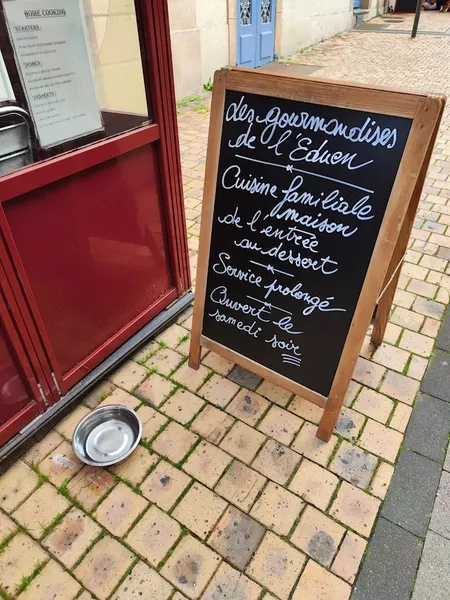 HOME COOKING
STARTERS
DISHES
DESSERTS
Les gourmandises
de l'Eduen
Cuisine familiale
maison
de l'entrée
au dessert
Service prolongé
Ouvert le
samedi soir